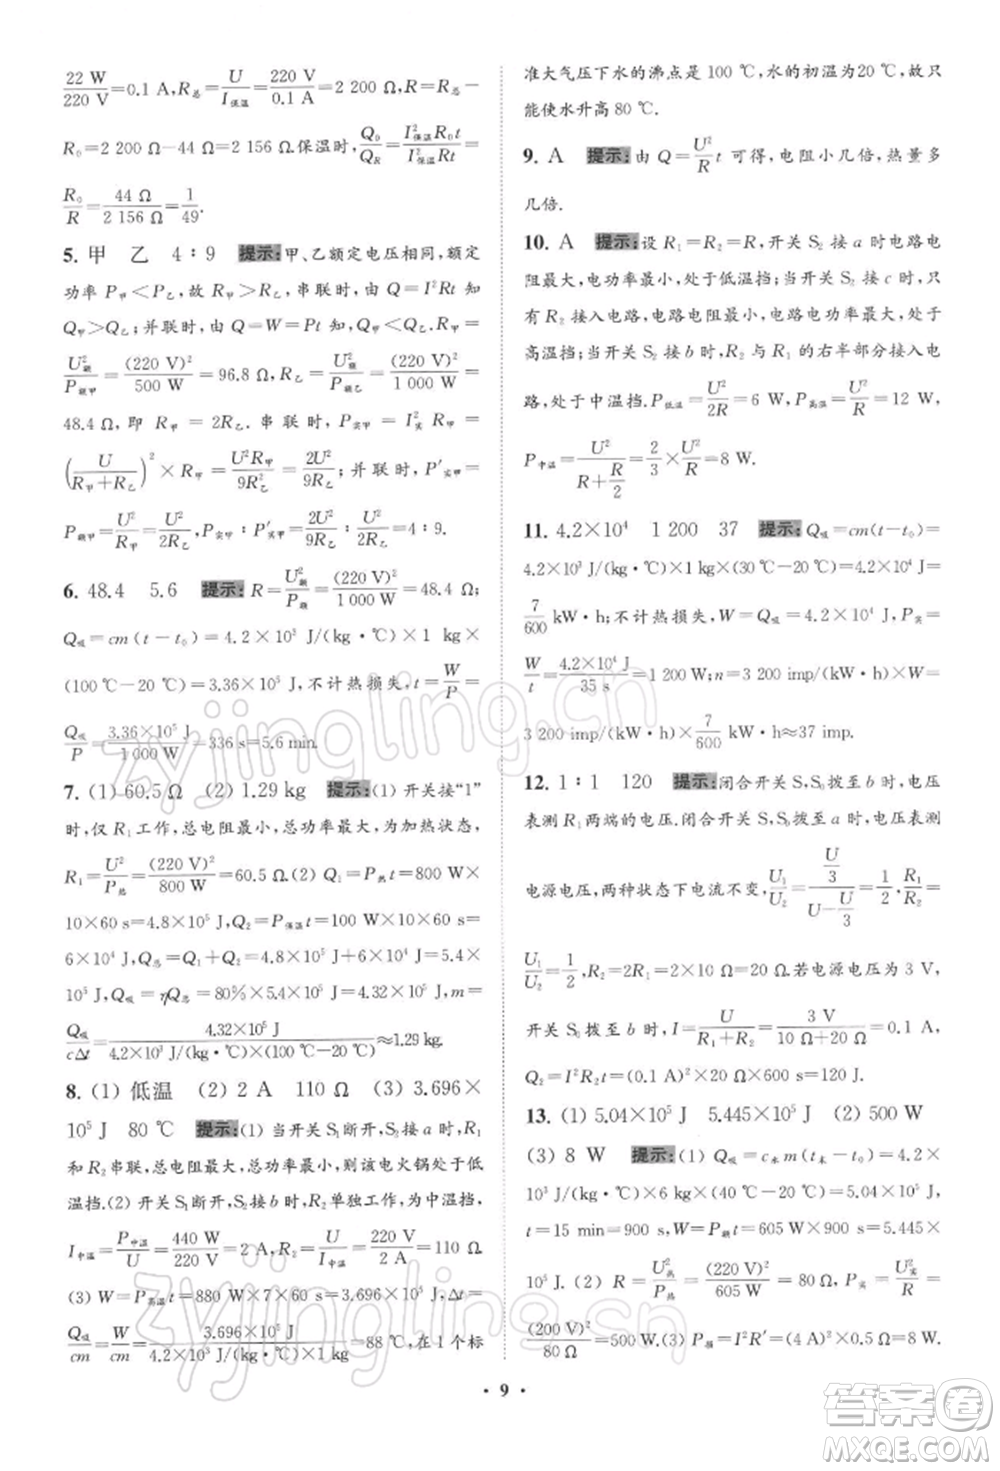 22 W/220 V=0.1 A,R总=U/I保温=220 V/0.1 A=2 200 Ω,R=R总-
R₀=2 200 Ω-44 Ω=2 156 Ω.保温时,Q₀/Q_R=I²保温R₀t/I²保温Rt=
R₀/R=44 Ω/2 156 Ω=1/49.
5. 甲 乙 4∶9 提示:甲、乙额定电压相同,额定
功率 P甲<P乙,故 R甲>R乙,串联时,由 Q=I²Rt 知
Q甲>Q乙;并联时,由 Q=W=Pt 知,Q甲<Q乙.R甲
=U²额/P额甲=(220 V)²/500 W=96.8 Ω,R乙=U²额/P额乙=(220 V)²/1 000 W=
48.4 Ω,即 R甲=2R乙.串联时,P实甲=I²串R甲=
(U/(R甲+R乙))²×R甲=U²R甲/9R²乙=2U²/9R乙;并联时,P′实甲=
P额甲=U²/R甲=U²/2R乙,P实甲∶P′实甲=2U²/9R乙∶U²/2R乙=4∶9.
6. 48.4 5.6 提示:R=U²额/P额=(220 V)²/1 000 W=48.4 Ω;
Q吸=cm(t-t₀)=4.2×10³ J/(kg·℃)×1 kg×
(100 ℃-20 ℃)=3.36×10⁵ J,不计热损失,t=W/P=
Q吸/P=3.36×10⁵ J/1 000 W=336 s=5.6 min.
7. (1) 60.5 Ω (2) 1.29 kg 提示:(1) 开关接“1”
时,仅 R₁工作,总电阻最小,总功率最大,为加热状态,
R₁=U²/P热=(220 V)²/800 W=60.5 Ω.(2) Q₁=P热t=800 W×
10×60 s=4.8×10⁵ J,Q₂=P保温t=100 W×10×60 s=
6×10⁴ J,Q总=Q₁+Q₂=4.8×10⁵ J+6×10⁴ J=5.4×
10⁵ J,Q吸=ηQ总=80%×5.4×10⁵ J=4.32×10⁵ J,m=
Q吸/cΔt=4.32×10⁵ J/4.2×10³ J/(kg·℃)×(100 ℃-20 ℃)≈1.29 kg.
8. (1) 低温 (2) 2 A 110 Ω (3) 3.696×
10⁵ J 80 ℃ 提示:(1) 当开关 S₁断开,S₂接 a 时,R₁
和 R₂串联,总电阻最大,总功率最小,则该电火锅处于低
温挡.(2) 开关 S₁断开,S₂接 b 时,R₂单独工作,为中温挡,
I中温=P中温/U=440 W/220 V=2 A,R₂=U/I中温=220 V/2 A=110 Ω.
(3) W=P高温t=880 W×7×60 s=3.696×10⁵ J,Δt=
Q吸/cm=W/cm=3.696×10⁵ J/4.2×10³ J/(kg·℃)×1 kg=88 ℃,在 1 个标
准大气压下水的沸点是 100 ℃,水的初温为20 ℃,故只
能使水升高 80 ℃.
9. A 提示:由 Q=U²/R t 可得,电阻小几倍,热量多
几倍.
10. A 提示:设 R₁=R₂=R,开关 S₂接 a 时电路电
阻最大,电功率最小,处于低温挡;当开关 S₂接 c 时,只
有 R₂接入电路,电路电阻最小,电路电功率最大,处于
高温挡;当开关 S₂接 b 时,R₂与 R₁的右半部分接入电
路,处于中温挡.P低温=U²/2R=6 W,P高温=U²/R=12 W,
P中温=U²/(R+R/2)=2/3×U²/R=8 W.
11. 4.2×10⁴ 1 200 37 提示:Q吸=cm(t-t₀)=
4.2×10³ J/(kg·℃)×1 kg×(30 ℃-20 ℃)=4.2×10⁴ J=
7/600 kW·h;不计热损失,W=Q吸=4.2×10⁴ J,P实=
W/t=4.2×10⁴ J/35 s=1 200 W;n=3 200 imp/(kW·h)×W=
3 200 imp/(kW·h)×7/600 kW·h≈37 imp.
12. 1∶1 120 提示:闭合开关 S,S₀拨至 b 时,电压
表测 R₁两端的电压.闭合开关 S,S₀拨至 a 时,电压表测
电源电压,两种状态下电流不变,U₁/U₂=(U/3)/(U-U/3)=1/2.R₁/R₂=
U₁/U₂=1/2,R₂=2R₁=2×10 Ω=20 Ω.若电源电压为 3 V,
开关 S₀拨至 b 时,I=U/(R₁+R₂)=3 V/(10 Ω+20 Ω)=0.1 A,
Q₂=I²R₂t=(0.1 A)²×20 Ω×10×60 s=120 J.
13. (1) 5.04×10⁵ J 5.445×10⁵ J (2) 500 W
(3) 8 W 提示:(1) Q吸=c水m(t末-t₀)=4.2×
10³ J/(kg·℃)×6 kg×(40 ℃-20 ℃)=5.04×10⁵ J,
t=15 min=900 s,W=P额t=605 W×900 s=5.445×
10⁵ J.(2) R=U²额/P热=(220 V)²/605 W=80 Ω,P实=U²实/R=
(200 V)²/80 Ω=500 W.(3) P损=I²R′=(4 A)²×0.5 Ω=8 W.
· 9 ·
zyjingling.cn
zyjingling.cn
答案圈
MXQE.COM